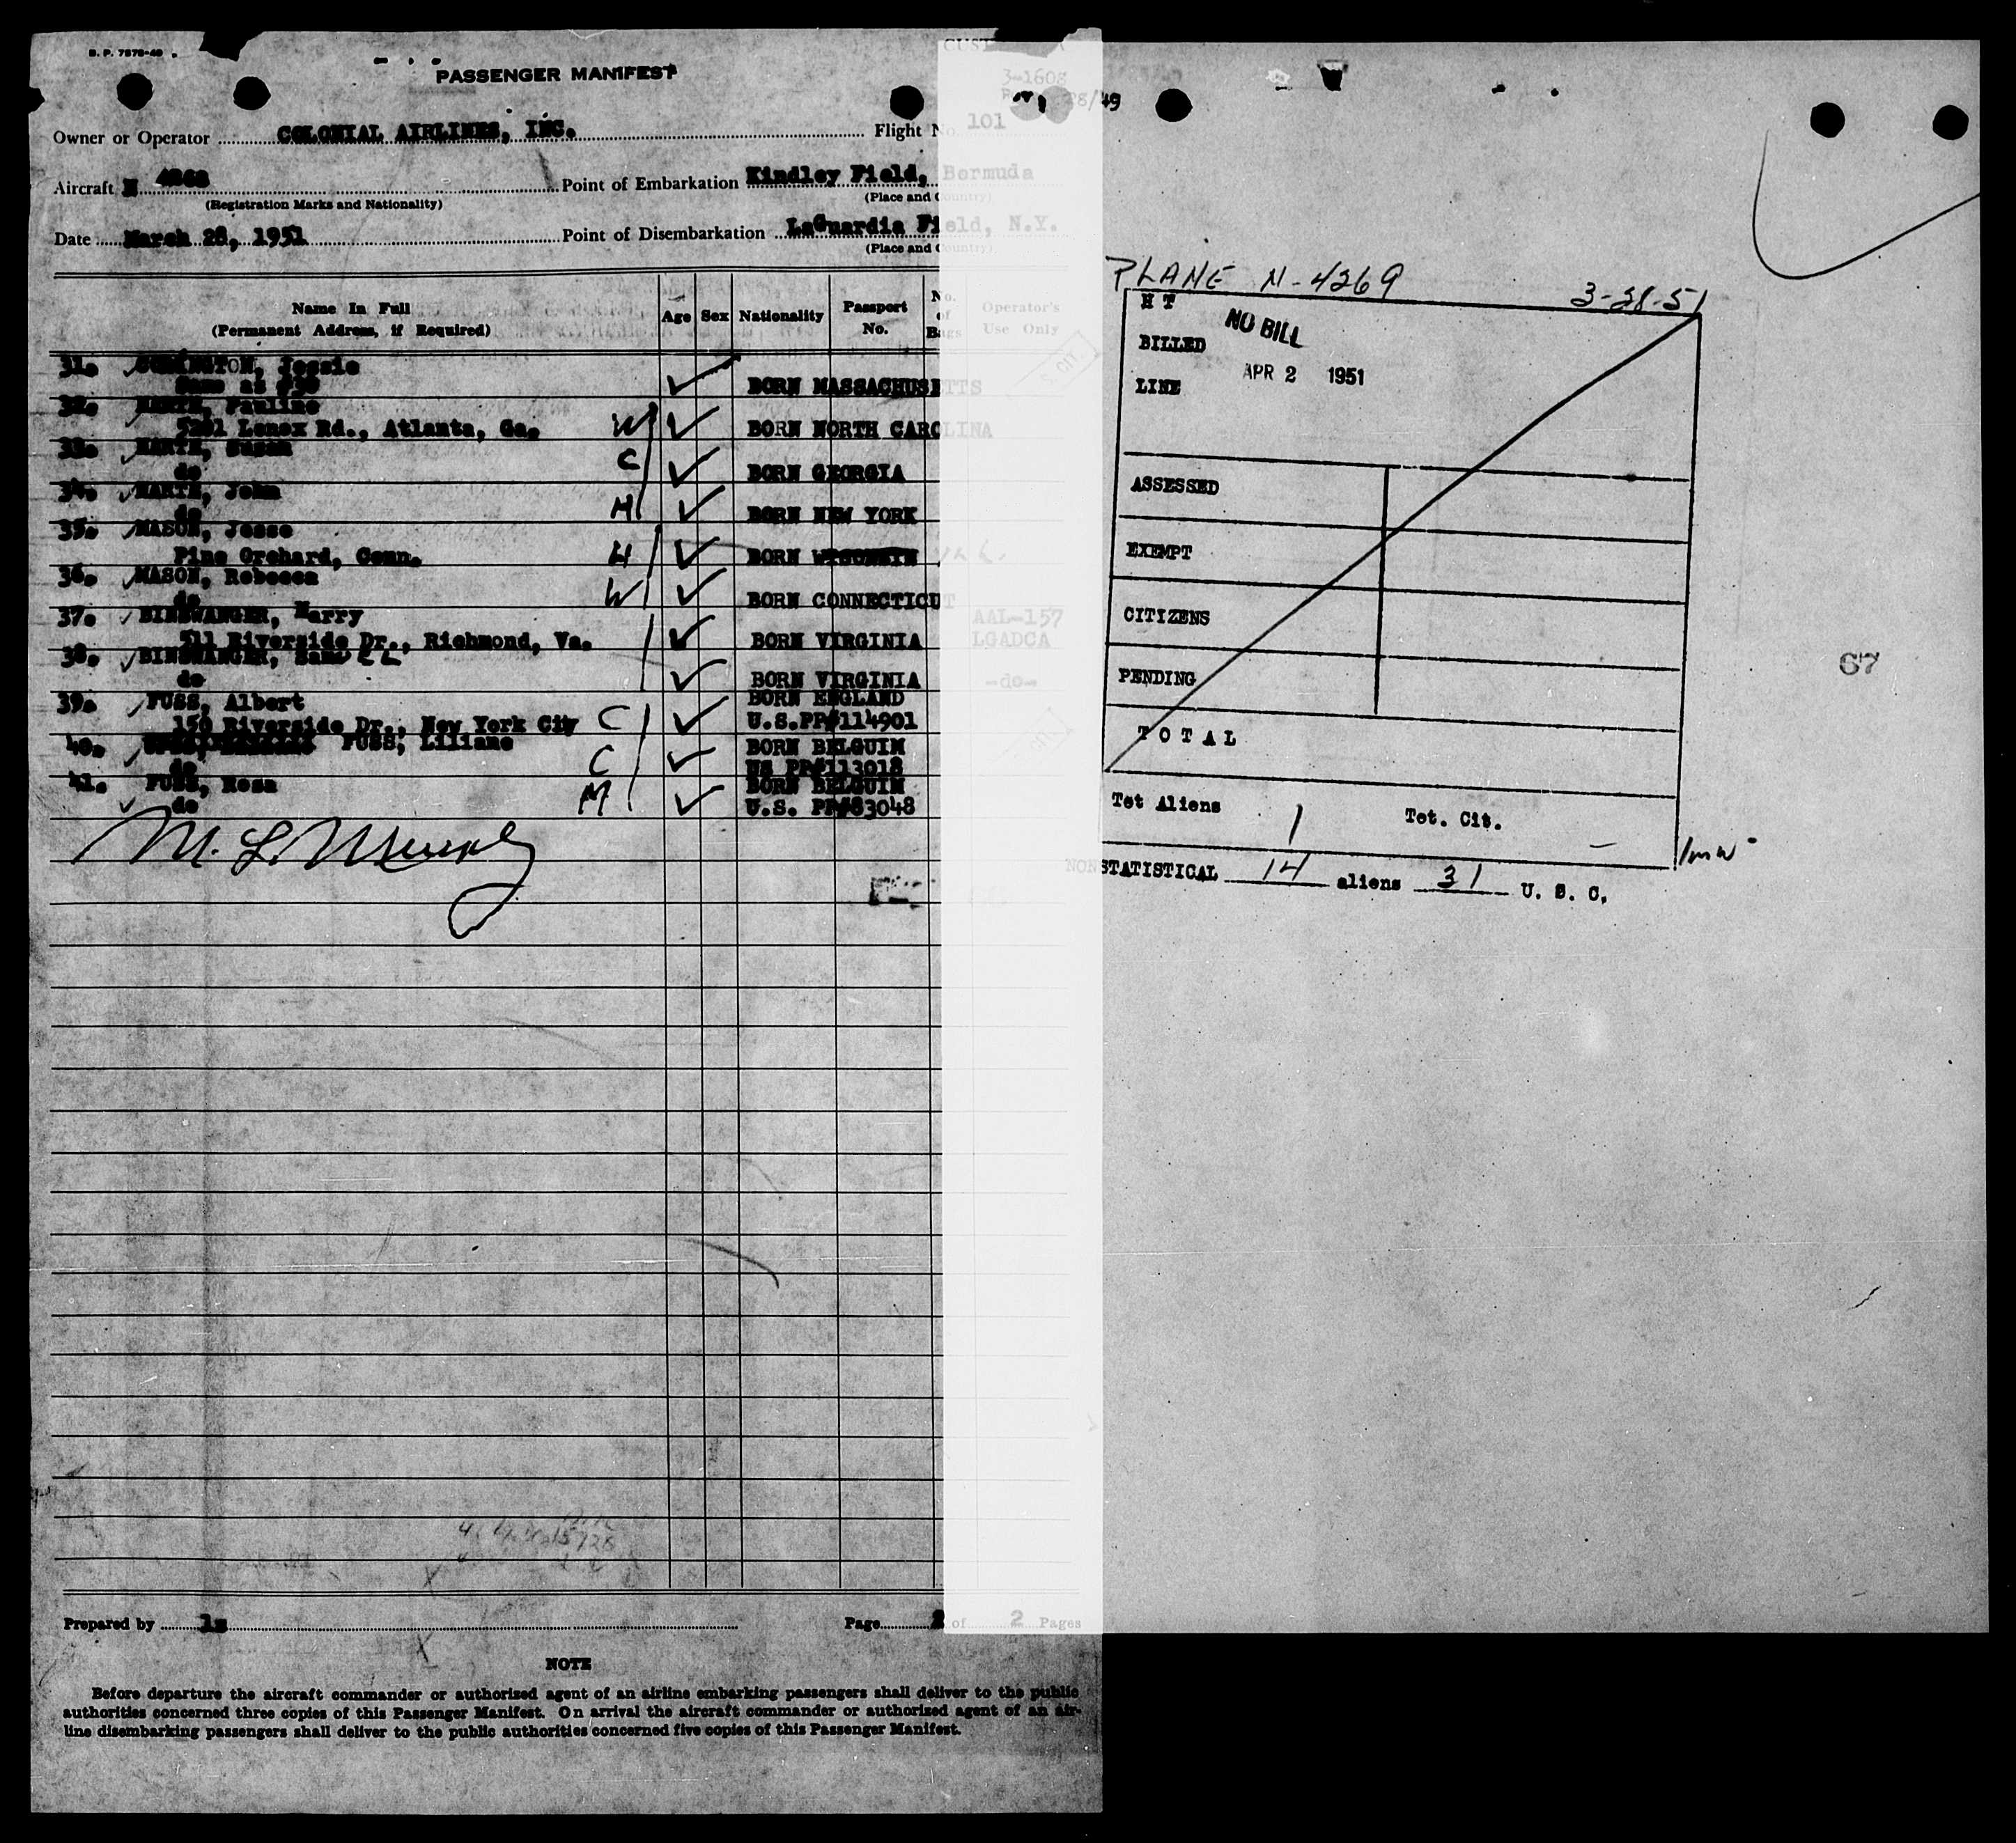 S. P. 7878-49
PASSENGER MANIFEST
3-1608
Owner or Operator COLONIAL AIRLINES, INC. Flight No. 101
Aircraft N Point of Embarkation Kindley Field, Bermuda
(Registration Marks and Nationality) (Place and Country)
Date March 28, 1951 Point of Disembarkation LaGuardia Field, N.Y.
(Place and Country)
Name In Full (Permanent Address, if Required) Age Sex Nationality Passport No. No. of Bags Operator's Use Only
31. Jessie
Same as #30 BORN MASSACHUSETTS
32. Pauline
Lenox Rd., Atlanta, Ga. W BORN NORTH CAROLINA
33. Susan
do C BORN GEORGIA
34. John
do H BORN NEW YORK
35. MASON, Jesse
Pine Orchard, Conn. H BORN
36. MASON, Rebecca
do W BORN CONNECTICUT
37. BINSWANGER, Harry AAL-157
511 Riverside Dr., Richmond, Va. BORN VIRGINIA LGADCA
38. BINSWANGER,
do BORN VIRGINIA -do-
39. FUSS, Albert BORN ENGLAND
150 Riverside Dr., New York City C U.S.PP#114901
40. FUSS, Liliane BORN BELGUIM
do C US PP#113018
41. FUSS, Rosa BORN BELGUIM
do M U.S. PP#83048
Prepared by ls Page 2 of 2 Pages
NOTE
Before departure the aircraft commander or authorized agent of an airline embarking passengers shall deliver to the public
authorities concerned three copies of this Passenger Manifest. On arrival the aircraft commander or authorized agent of an air-
line disembarking passengers shall deliver to the public authorities concerned five copies of this Passenger Manifest.
PLANE N-4269 3-28-51
H T
NO BILL
BILLED
APR 2 1951
LINE
ASSESSED
EXEMPT
CITIZENS
PENDING
TOTAL
Tot Aliens 1 Tot. Cit. -
NONSTATISTICAL 14 aliens 31 U. S. C.
67